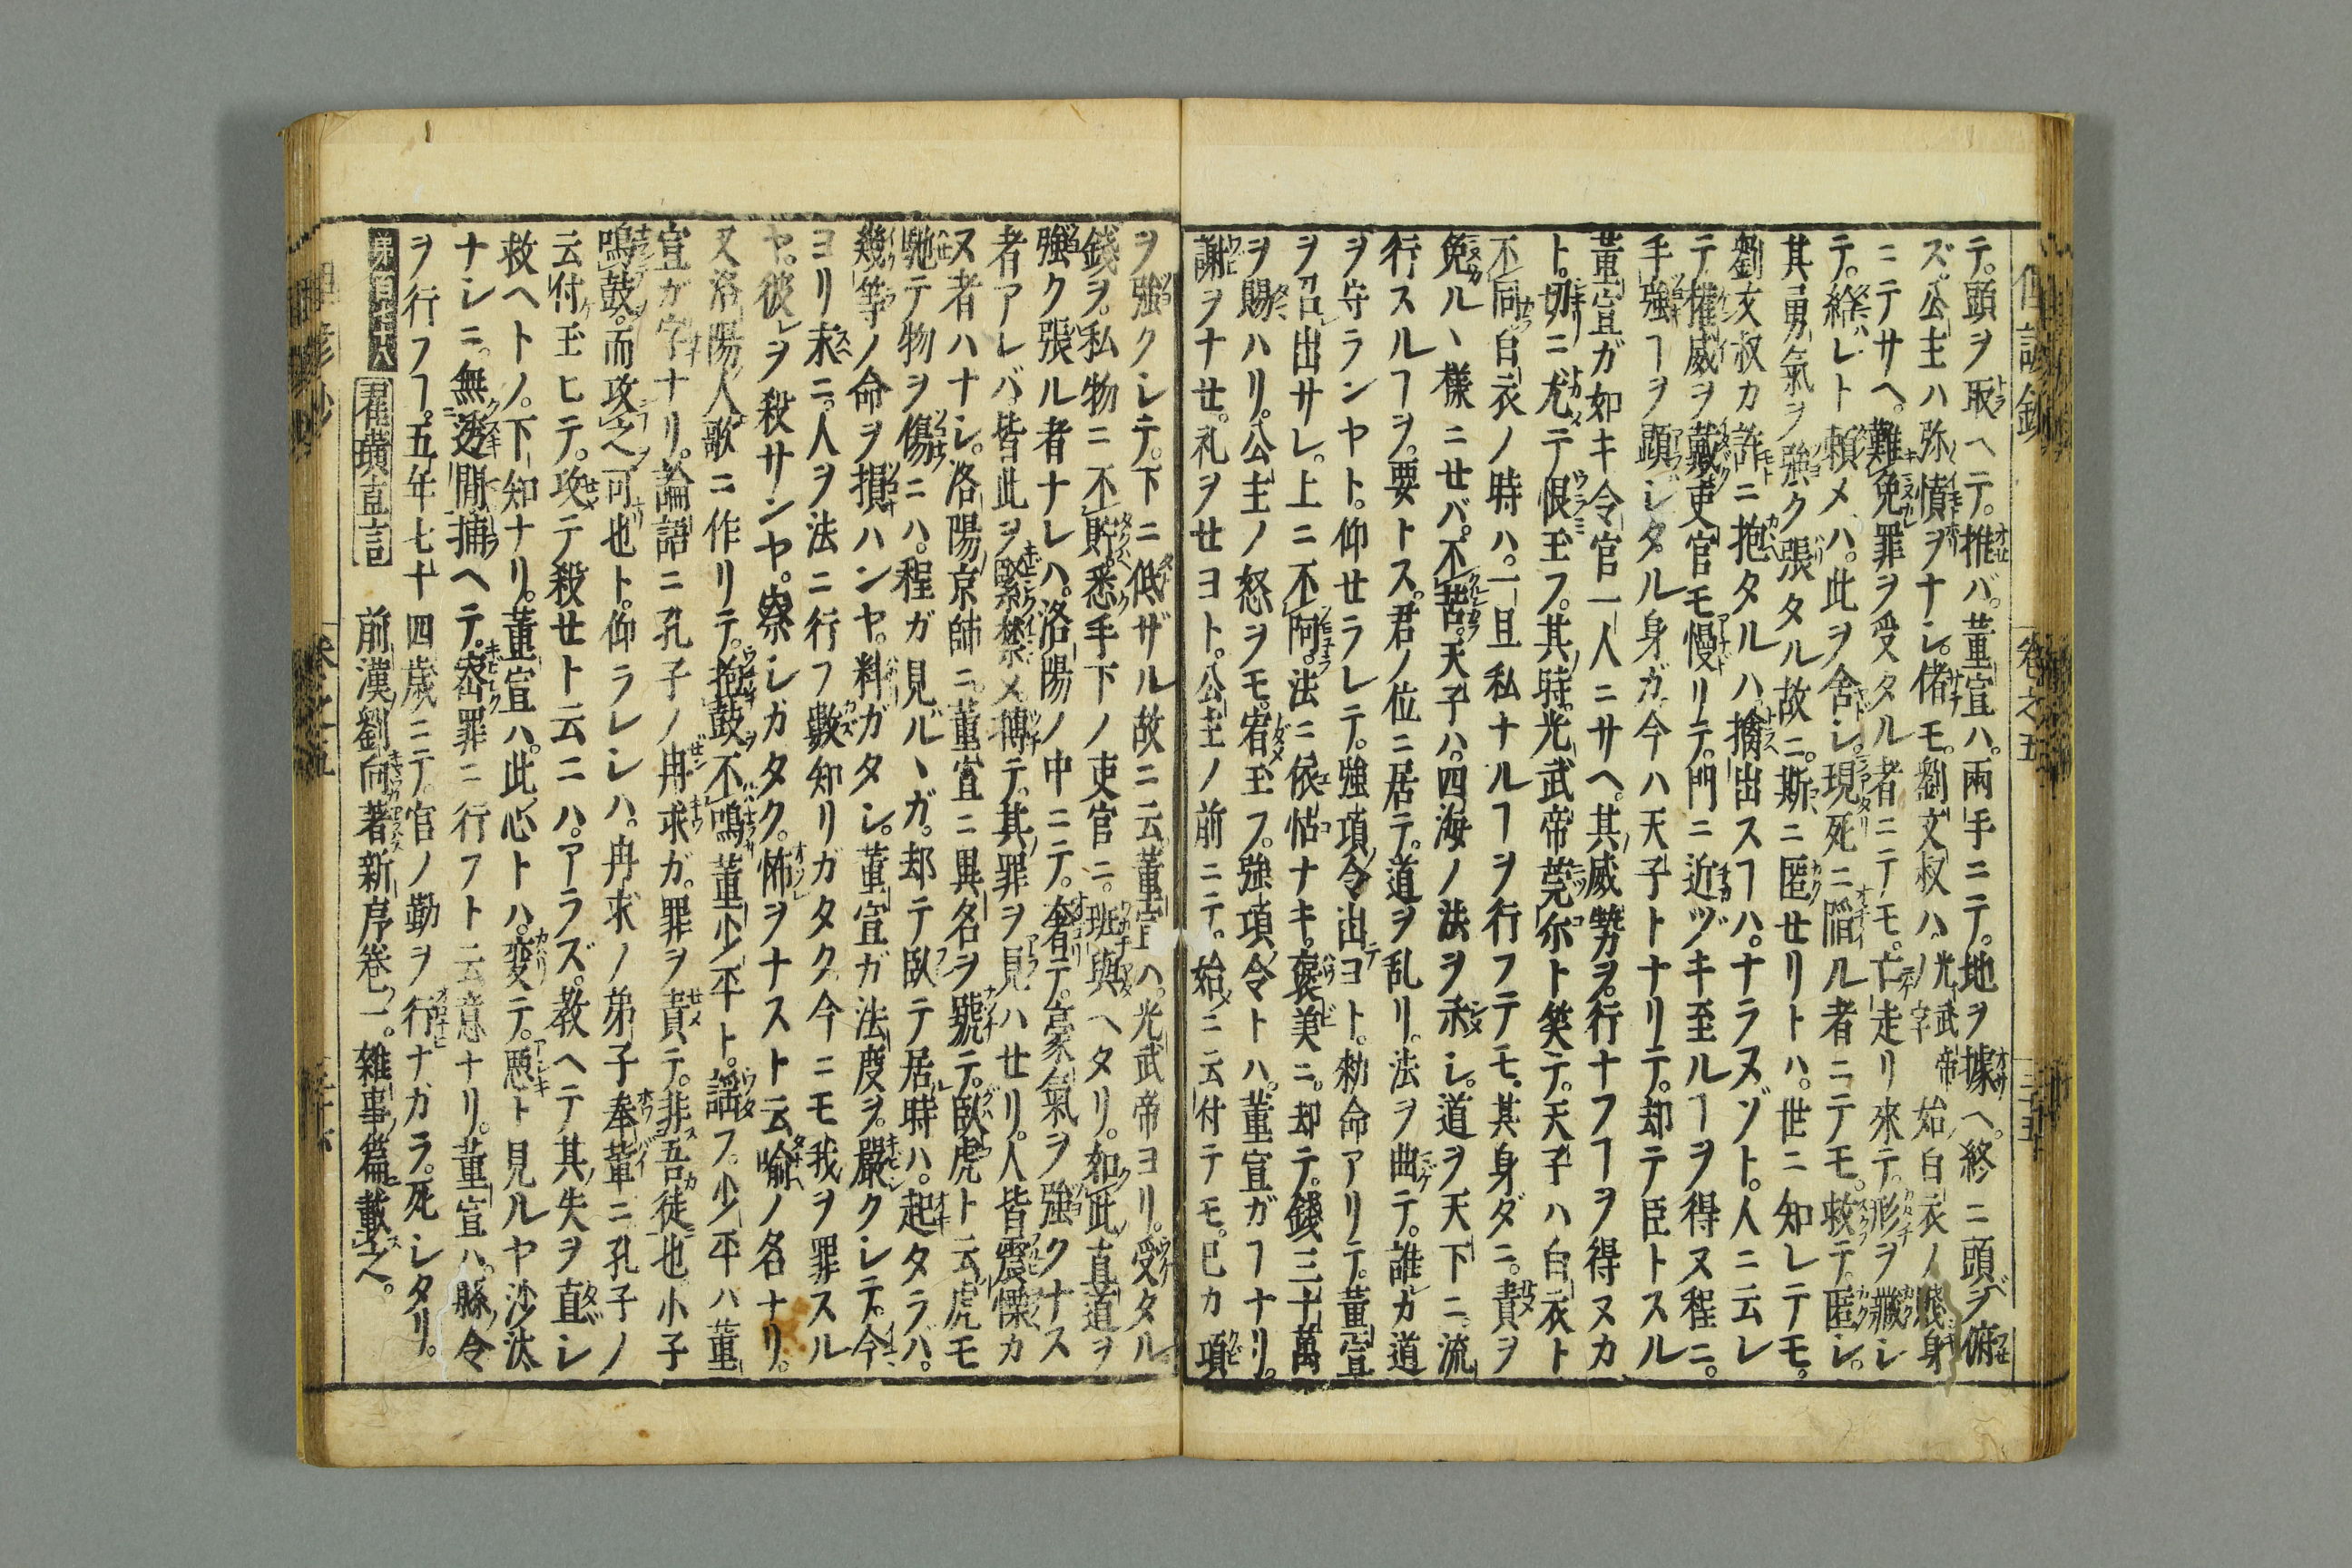 テ。頭ヲ取ヘテ。推バ。董宣ハ。兩手ニテ。地ヲ據ヘ。終ニ頭ヲ俯
ズ。公主ハ弥憤ヲナシ。偖モ。劉文叔ハ。光武帝ノ字始白衣ノ賤身
ニテサヘ。難免罪ヲ受タル者ニテモ。亡走リ來テ。形ヲ藏シ
テ。給レト頼メハ。此ヲ舍シ。現死ニ陷ル者ニテモ。救テ。匿シ。
其勇氣ヲ強ク張タル故ニ。斯ニ匿セリトハ。世ニ知レテモ。
劉文叔カ許ニ抱タルハ擒出スヿハ。ナラヌゾト。人ニ云レ
テ。権威ヲ戴吏官モ慢リテ。門ニ近ヅキ至ルヿヲ得ヌ程ニ。
手強ヿヲ顕シタル身ガ。今ハ天子トナリテ。却テ臣トスル
董宣ガ如キ令官一人ニサヘ。其威勢ヲ。行ナフヿヲ得ヌカ
ト。切ニ尤テ恨玉フ。其時光武帝莞尓ト笑テ。天子ハ白衣ト
不同白衣ノ時ハ。一旦私ナルヿヲ行フテモ。其身ダニ。責ヲ
免ルヽ様ニセバ。不苦。天子ハ。四海ノ法ヲ示シ。道ヲ天下ニ。流
行スルヿヲ。要トス。君ノ位ニ居テ。道ヲ乱リ。法ヲ曲テ。誰カ道
ヲ守ランヤト。仰セラレテ。強項令出ヨト。勅命アリテ。董宣
ヲ召出サレ。上ニ不阿。法ニ依怙ナキ。褒美ニ。却テ。錢三十萬
ヲ賜ハリ。公主ノ怒ヲモ。宥玉フ。強項令トハ。董宣ガヿナリ。
謝ヲナせ。礼ヲせヨト。公主ノ前ニテ。始ニ云付テモ。己カ項
ヲ強クシテ。下ニ低ザル故ニ云。董宣ハ。光武帝ヨリ。受タル
錢ヲ。私物ニ不貯。悉手下ノ吏官ニ。班與ヘタリ。如此直道ヲ
強ク張ル者ナレハ。洛陽ノ中ニテ。奢テ。豪氣ヲ強クナス
者アレバ。皆此ヲ禦禁メ搏テ。其罪ヲ見ハせリ。人皆震慄カ
ヌ者ハナシ。洛陽京師ニ。董宣ニ異名ヲ號テ。臥虎ト云。虎モ
馳テ物ヲ傷ニハ。程ガ見ルヽガ。却テ臥テ居時ハ。起タラバ。
幾等ノ命ヲ損ハンヤ。料ガタシ。董宣ガ法度ヲ。嚴クシテ。今
ヨリ末ニ。人ヲ法ニ行フ數知リガタク今ニモ我ヲ罪スル
ヤ。彼ヲ殺サンヤ。察シガタク。怖ヲナスト云喻ノ名ナリ。
又洛陽人歌ニ作リテ。抱鼓不鳴董少平ト。謡フ。少平ハ董
宣ガ字ナリ。論語ニ孔子ノ冉求ガ。罪ヲ責テ。非吾徒也。小子
鳴鼓。而攻之可也ト。仰ラレシハ。冉求ノ弟子奉輩ニ孔子ノ
云付玉ヒテ。攻テ殺せト云ニハ。アラズ。教ヘテ其失ヲ直シ
救ヘトノ。下知ナリ。董宣ハ。此心トハ。変テ。悪ト見ルヤ沙汰
ナシニ。無透間捕ヘテ。密罪ニ行フト云意ナリ。董宣ハ。縣令
ヲ行フヿ。五年七十四歳ニテ。官ノ勤ヲ行ナガラ。死シタリ。
翟璜直言　前漢劉向著新序卷一。雜事篇載之。
卷之五